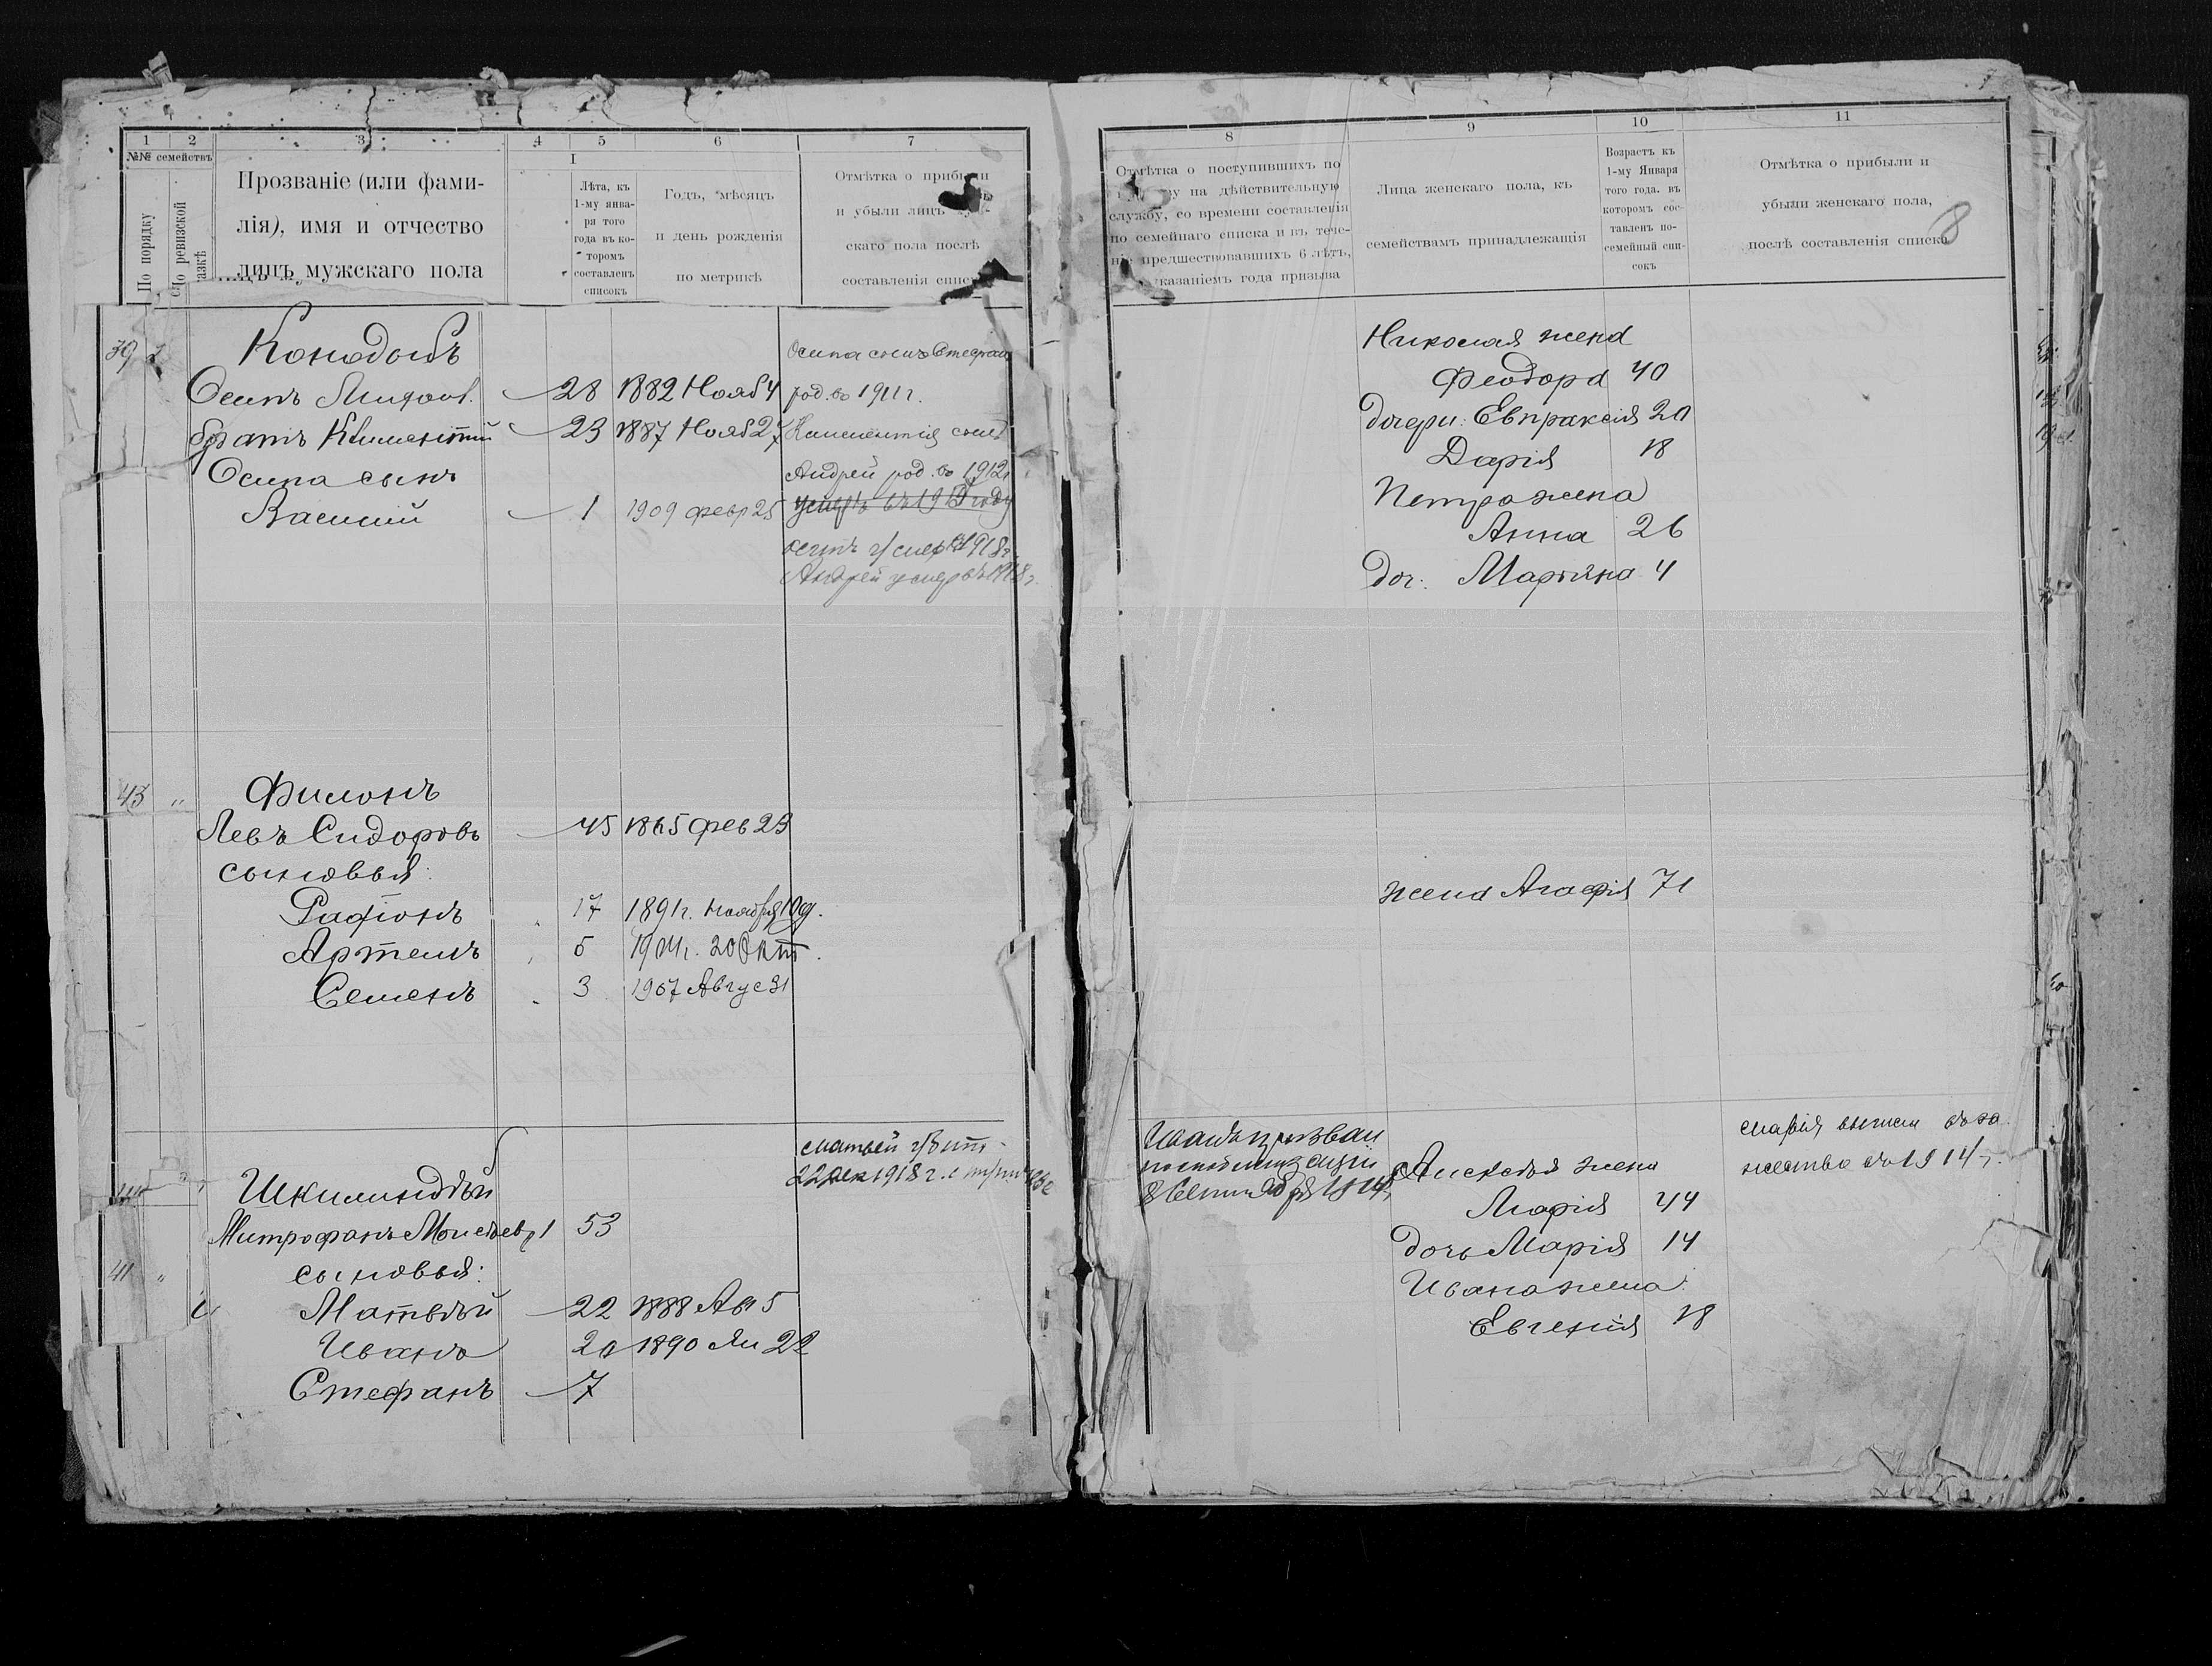 1 2 3 4 5 6 7
№№ семействъ
По порядку
По ревизской
сказкѣ
Прозваніе (или фами-
лія), имя и отчество
лицъ мужскаго пола
I
Лѣта, къ
1-му янва-
ря того
года въ ко-
торомъ
составленъ
списокъ
Годъ, мѣсяцъ
и день рожденія
по метрикѣ
Отмѣтка о прибыли
и убыли лицъ
скаго пола послѣ
составленія списка
39
Осипъ 28 1882 Нояб 4 род. въ 1911 г.
братъ Климентій 23 1887 Нояб 27 Климентія сынъ
Осипа сынъ Андрей род. въ 1912
Василий 1 1909 февр 25
Андрей умеръ 1918 г.
43 "
Филонъ
Левъ Сидоровъ 45 1865 фев 23
сыновья:
17 1891 г. ноября
Артемъ 5 1904 г. 20 Окт.
Семенъ 3 1907 Авгус 31
матвей
22 дек 1918 г.
Митрофанъ Моисеевъ 53
41 "
сыновья:
Матвѣй 22 1888 Ав 5
Иванъ 20 1890 Ян 22
Стефанъ 7
8 9 10 11
Отмѣтка о поступившихъ по
на дѣйствительную
службу, со времени составленія
по семейнаго списка и въ тече-
предшествовавшихъ 6 лѣтъ,
указаніемъ года призыва
Лица женскаго пола, къ
семействамъ принадлежащія
Возрастъ къ
1-му Января
того года. въ
которомъ сос-
тавленъ по-
семейный спи-
сокъ
Отмѣтка о прибыли и
убыли женскаго пола,
послѣ составленія списка
8
Николая жена
Феодора 40
дочери: Евпраксия 20
Дарія 18
Петра жена
Анна 26
доч. 4
жена Агафія
Иванъ призван
по мобилизации
8 Сентября 1914
Марія вышла въ за-
мжество въ 1914 г.
жена
Марія 44
дочь Марія 14
Ивана жена
Евгенія 18